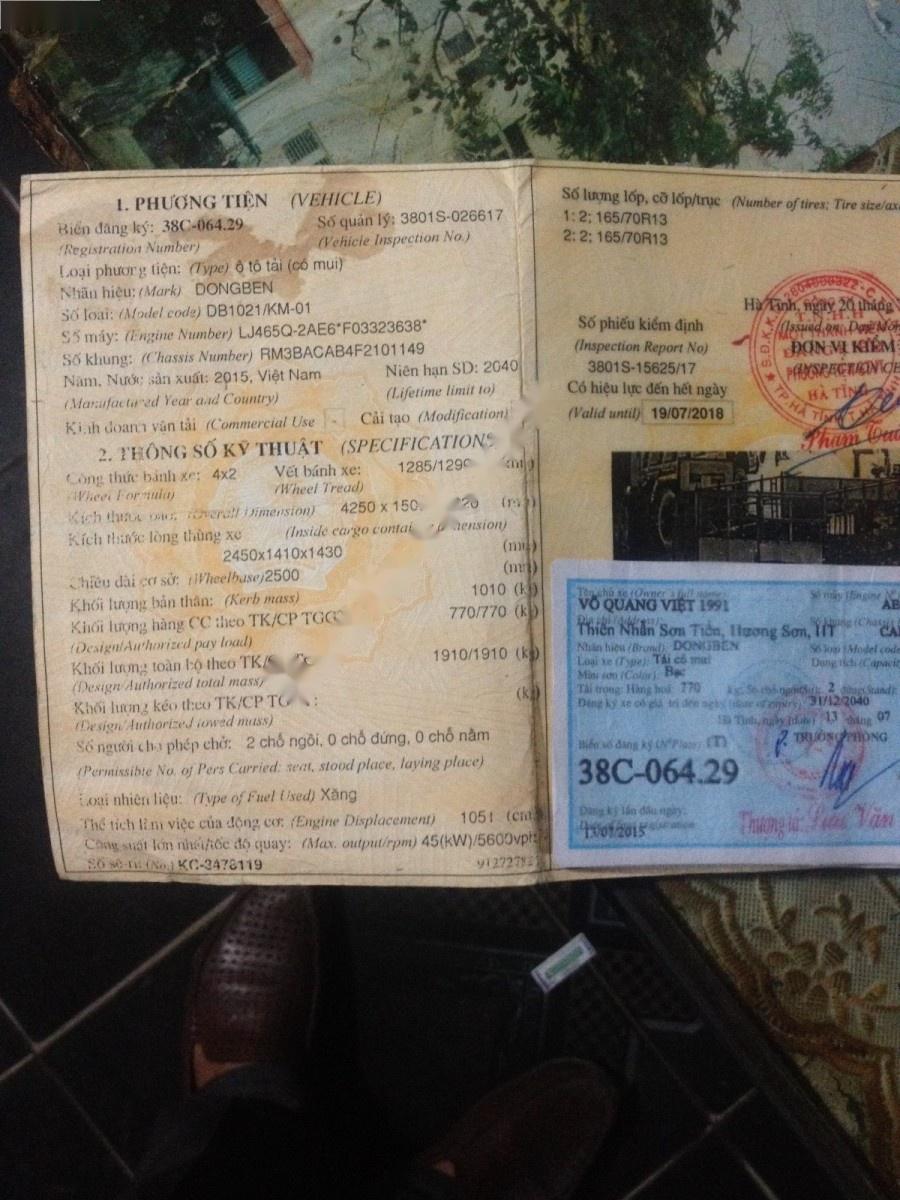 1. PHƯƠNG TIỆN (VEHICLE)
Biển đăng ký: 38C-064.29 Số quản lý: 3801S-026617
(Registration Number) (Vehicle Inspection No.)
Loại phương tiện: (Type) ô tô tải (có mui)
Nhãn hiệu: (Mark) DONGBEN
Số loại: (Model code) DB1021/KM-01
Số máy: (Engine Number) LJ465Q-2AE6*F03323638*
Số khung: (Chassis Number) RM3BACAB4F2101149
Năm, Nước sản xuất: 2015, Việt Nam Niên hạn SD: 2040
(Manufactured Year and Country) (Lifetime limit to)
Kinh doanh vận tải (Commercial Use - Cải tạo (Modification)
2. THÔNG SỐ KỸ THUẬT (SPECIFICATIONS
Công thức bánh xe: 4x2 Vết bánh xe: 1285/1290
(Wheel Formula) (Wheel Tread)
Kích thước bao: (Overall Dimension) 4250 x 150
Kích thước lòng thùng xe (Inside cargo
2450x1410x1430 (mm)
Chiều dài cơ sở: (Wheelbase) 2500 (mm)
Khối lượng bản thân: (Kerb mass) 1010 (kg)
Khối lượng hàng CC theo TK/CP TGGT 770/770 (kg)
(Design/Authorized pay load)
Khối lượng toàn bộ theo TK/ 1910/1910 (kg)
(Design/Authorized total mass)
Khối lượng kéo theo TK/CP TG : (kg)
(Design/Authorized towed mass)
Số người cho phép chở: 2 chỗ ngồi, 0 chỗ đứng, 0 chỗ nằm
(Permissible No. of Pers Carried: seat, stood place, laying place)
Loại nhiên liệu: (Type of Fuel Used) Xăng
Thể tích làm việc của động cơ: (Engine Displacement) 1051 (cm
Công suất lớn nhất/tốc độ quay: (Max. output/rpm) 45(kW)/5600vph
Số sê-ri: (No.) KC-3478119
Số lượng lốp, cỡ lốp/trục (Number of tires; Tire size/ax
1: 2; 165/70R13
2: 2; 165/70R13
Hà Tĩnh, ngày 20 tháng
Số phiếu kiểm định (Issued on:
(Inspection Report No) ĐƠN VỊ KIỂM
3801S-15625/17 (INSPECTION CE
Có hiệu lực đến hết ngày
(Valid until) 19/07/2018
HÀ TĨNH
Tên chủ xe (Owner's full name): Số máy (Engine N
VÕ QUANG VIỆT 1991 AB
Thiên Nhẫn Sơn Tiến, Hương Sơn, HT
Nhãn hiệu (Brand): DONGBEN Số loại (Model code
Loại xe (Type): Tải có mui Dung tích (Capacity
Màu sơn (Color): Bạc
Tải trọng: Hàng hoá: 770 kg; Số chỗ ngồi 2 đứng(Stand):
Đăng ký xe có giá trị đến ngày (date of expiry) 31/12/2040
Hà Tĩnh, ngày (date) 13 tháng 07
Biển số đăng ký (N°Plate) (T) TRƯỞNG PHÒNG
38C-064.29
Đăng ký lần đầu ngày:
Thượng tá: